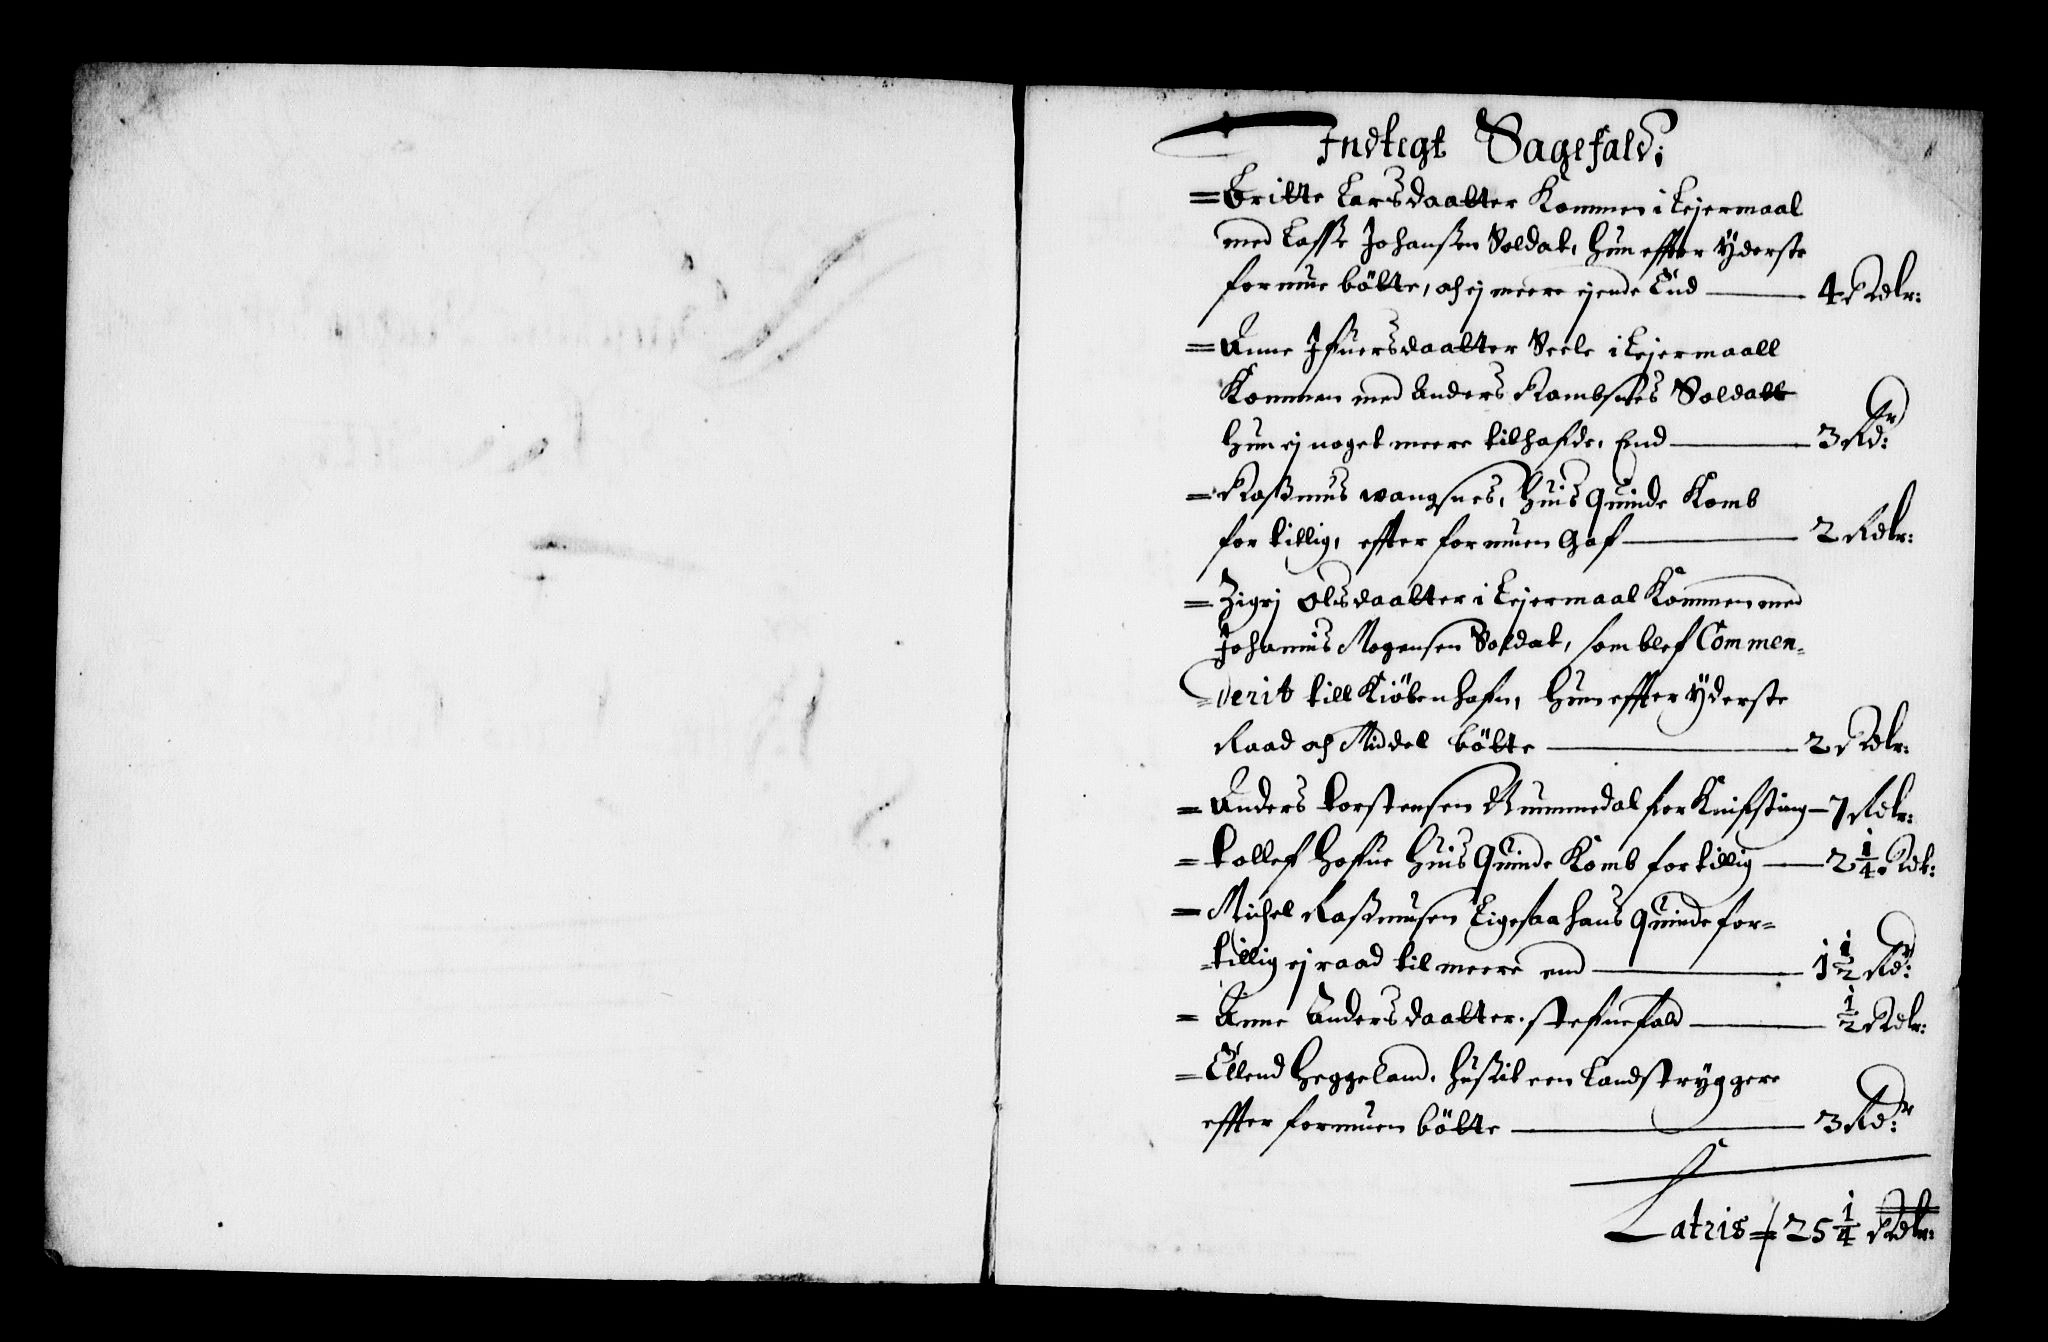 Indtegt Sagefald:
= Britte Larsdaatter Kommen i Lejermaal
med Lasse Johanßen Soldat, hun effter Yderste
formue bötte, och ej meere ejende End — 4 Rdlr:
= Anne Ifuersdaatter Seele i Lejermaall
Kommen med Anders Rambsnes Soldatt
hun ej noget meere tilhafde, End — 3 Rdr:
= Raßmus wangsnes, huis Quinde Komb
for tillig, effter formuen Gaf — 2 Rdlr:
= Zigrj Olsdaatter i Lejermaal Kommen med
Johannis Mogensen Soldat, som blef Commen=
=derit till Kiöbenhafn, hun effter Yderste
Raad och Middel bötte — 2 Rdlr:
= Anders torstensen Rummedal for Knifsting — 7 Rdlr:
= tollef hofue huis Quinde Komb for tillig — 2 1/4 Rdl:
= Michel Raßmusen Eigesaa hans Quinde for=
=tillig ej raad til meere end — 1 1/2 Rdr:
= Anne Andersdaatter stefnefald — 1/2 Rdlr:
= Ellend heggeland, hußit een Landstryggere
effter formuen bötte — 3 Rdr:
Latris = 25 1/4 Rdlr: